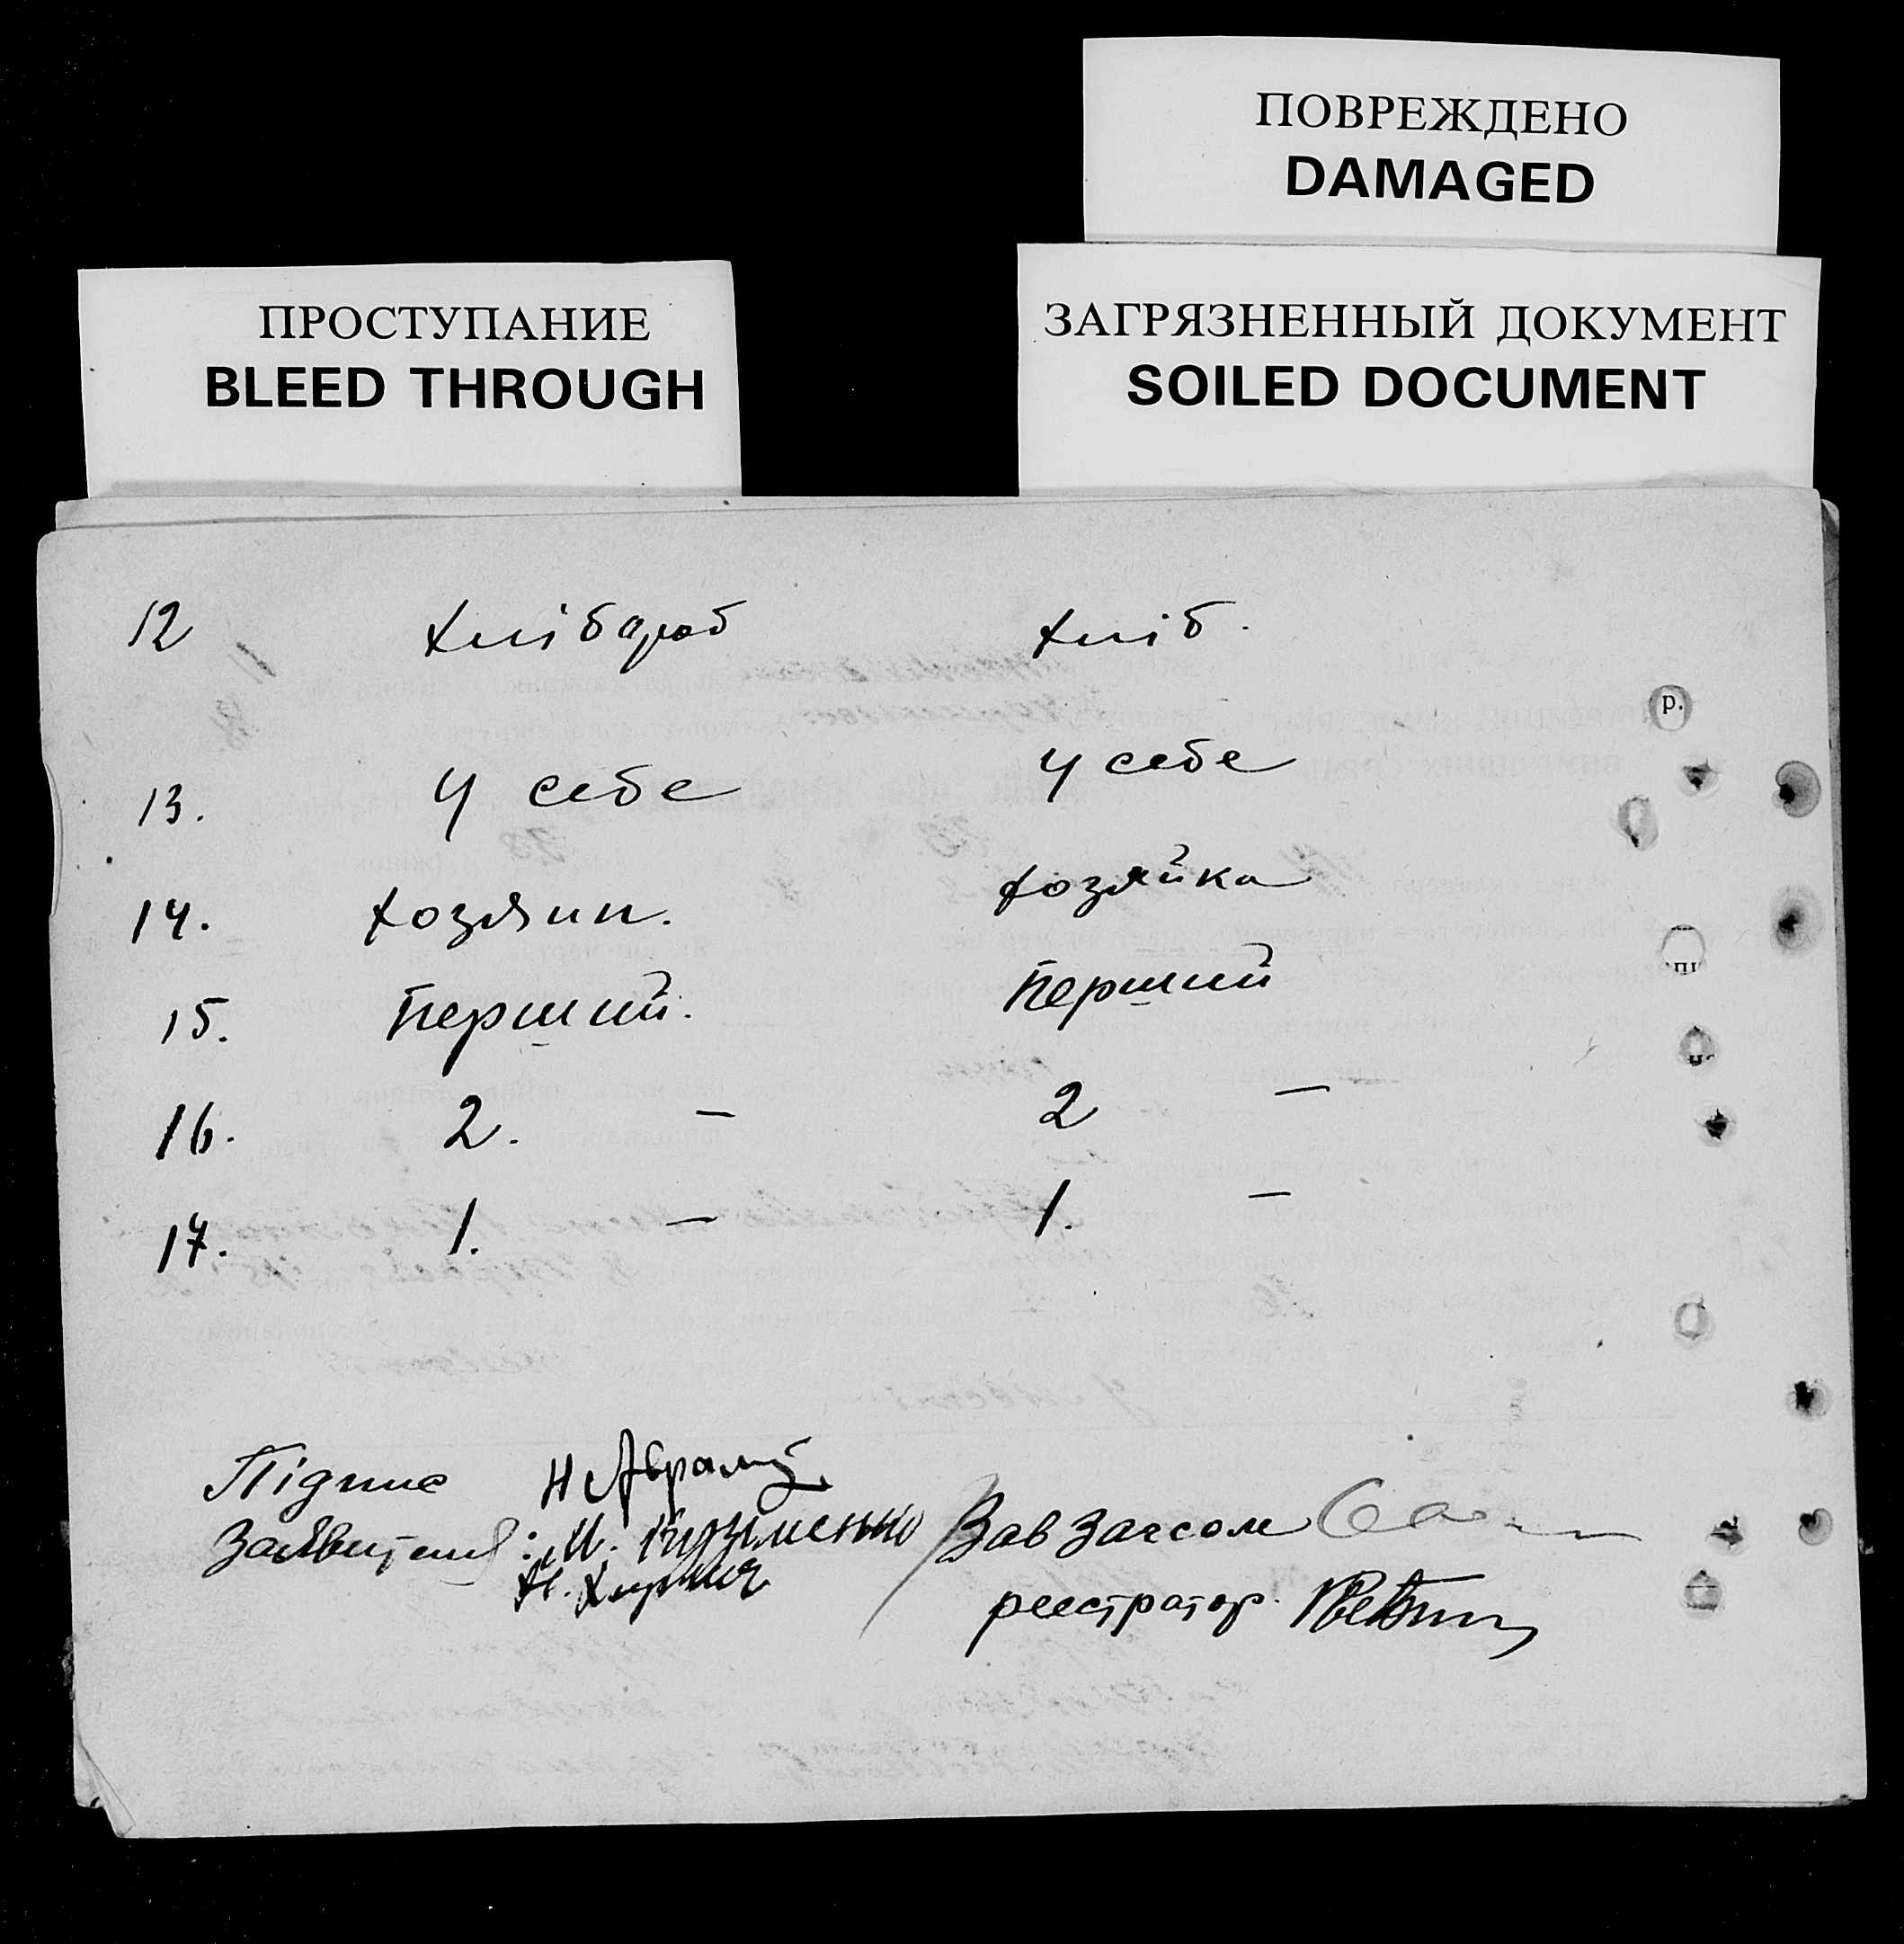 ПОВРЕЖДЕНО
DAMAGED
ПРОСТУПАНИЕ
BLEED THROUGH
ЗАГРЯЗНЕННЫЙ ДОКУМЕНТ
SOILED DOCUMENT
12 хлібороб хліб.
13. У себе У себе
14. хозяин. хозяйка
15. перший. перший
16. 2. — 2 —
17. 1. — 1. —
р.
Підпис
Заявителів: И. Кузьменко Зав Загсом
реєстратор.